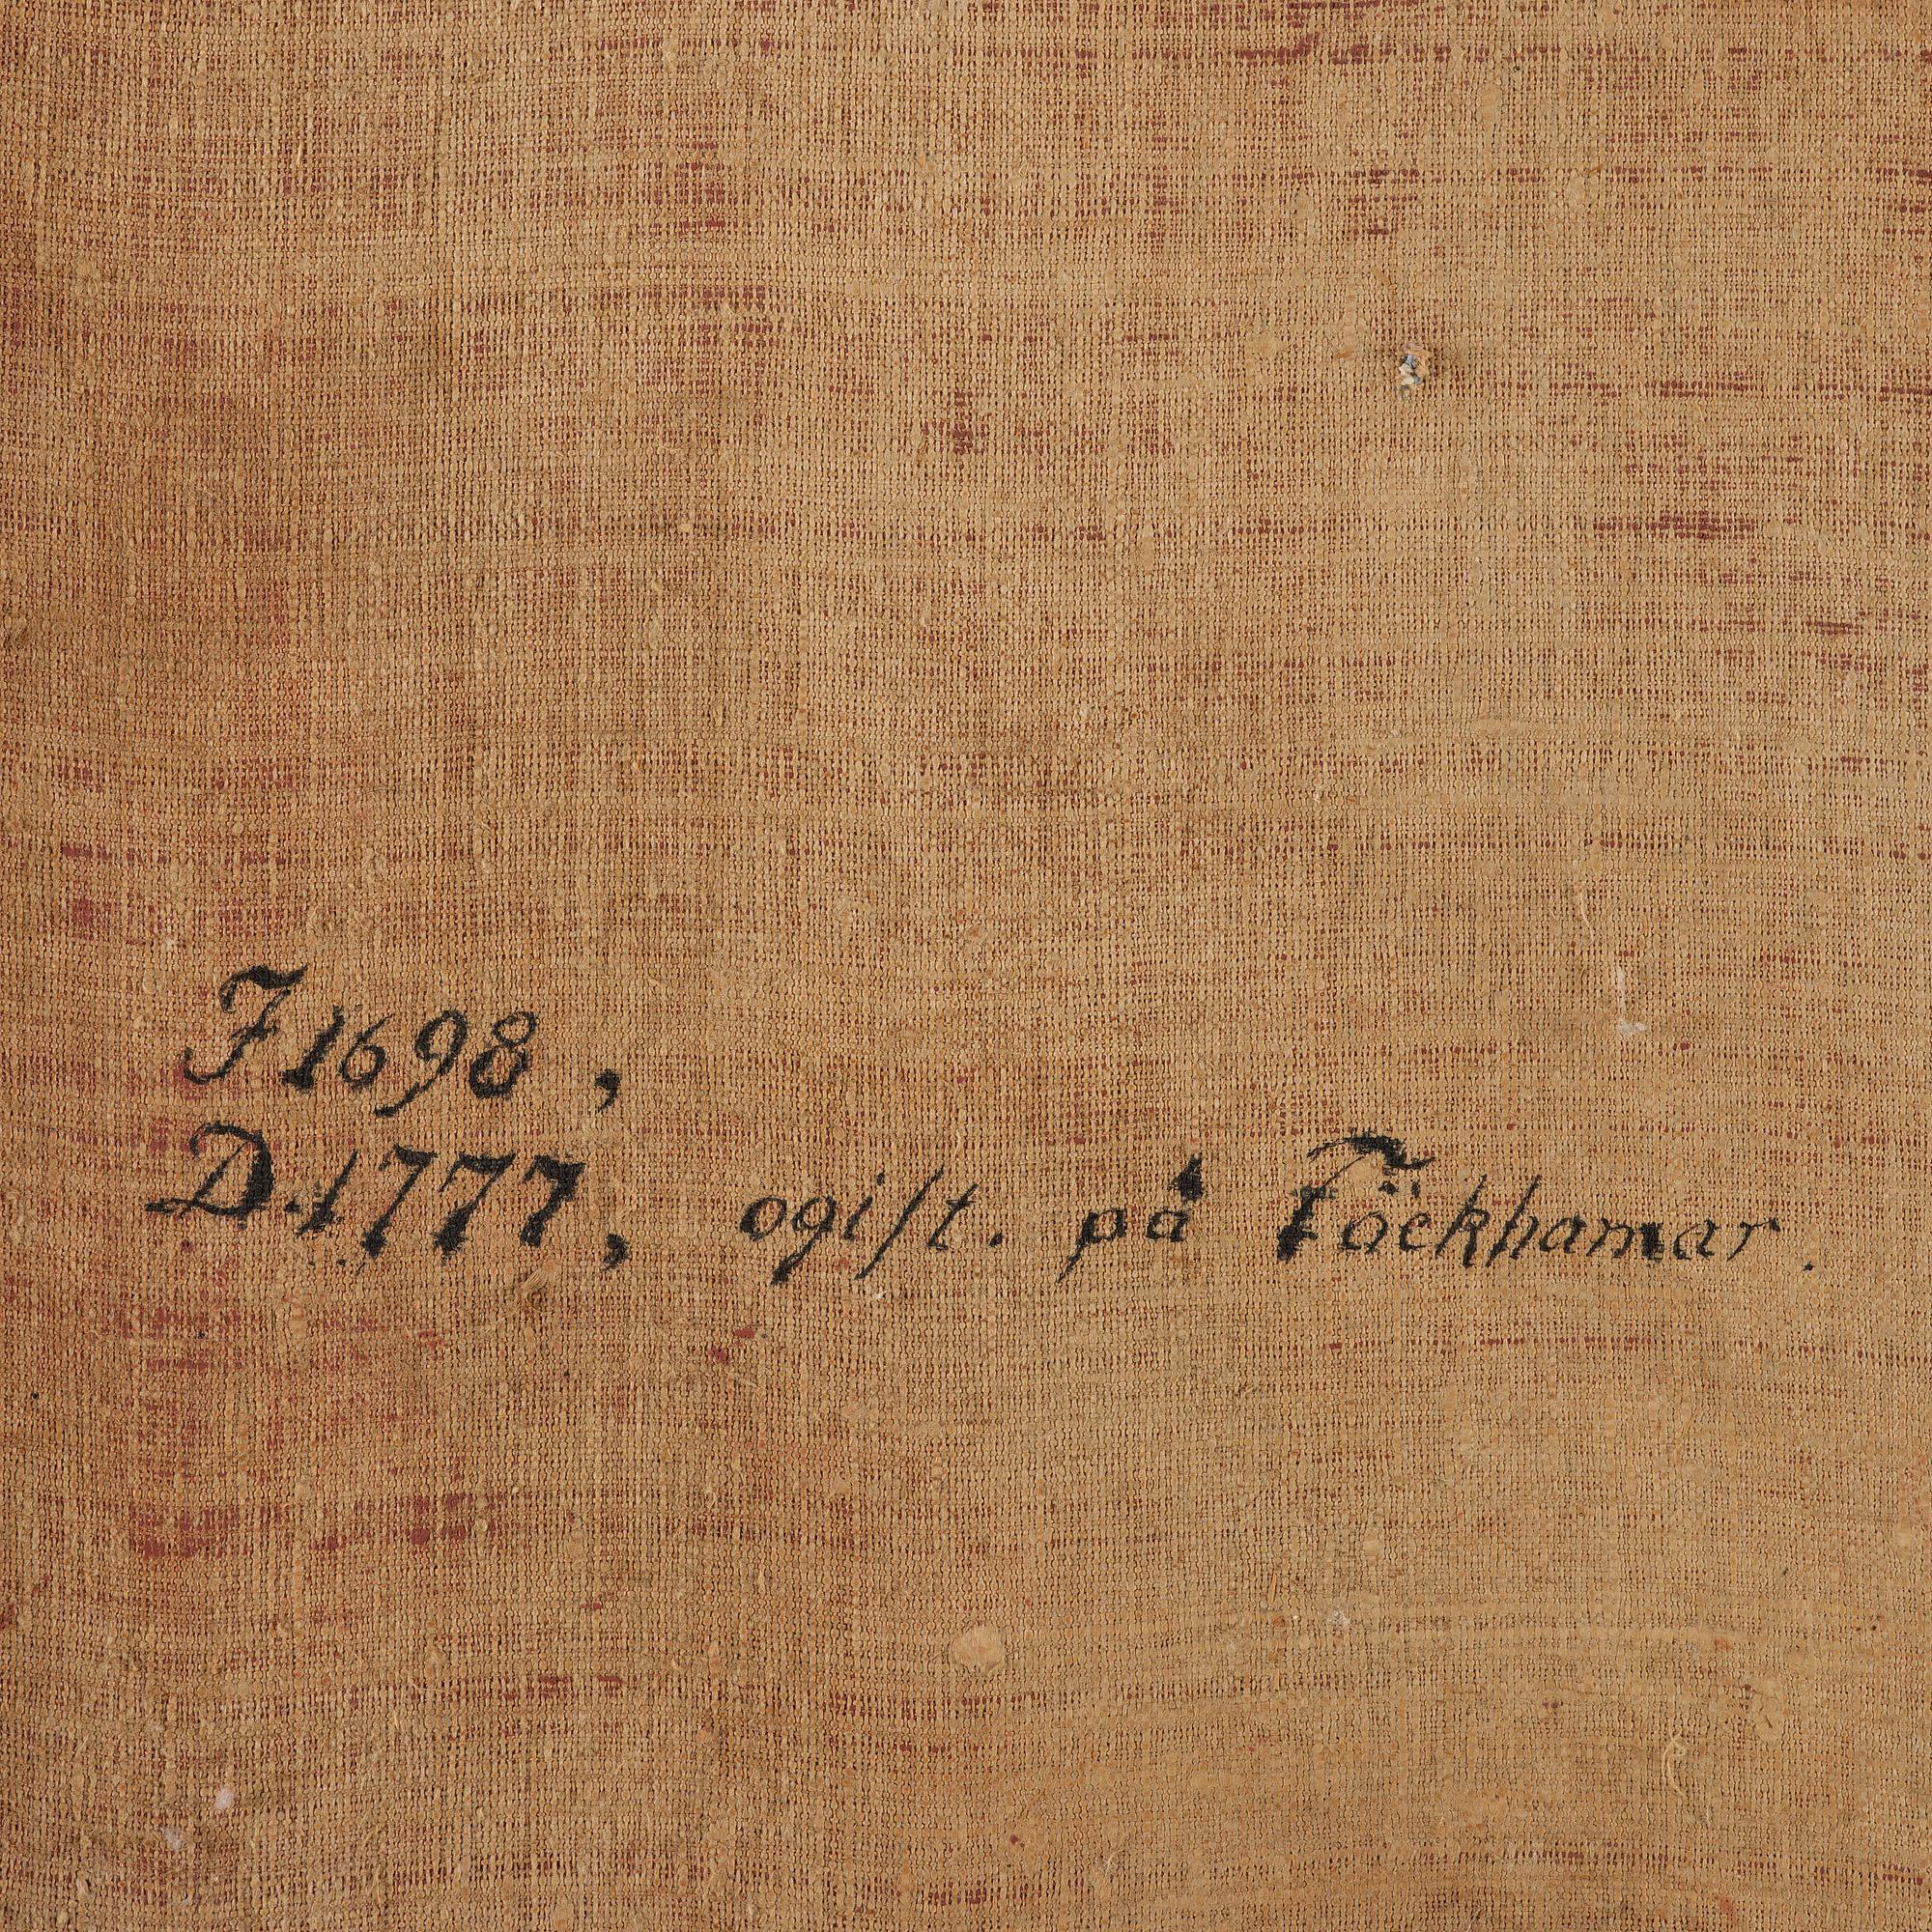 F 1698,
D. 1777, ogift. på Föckhamar.